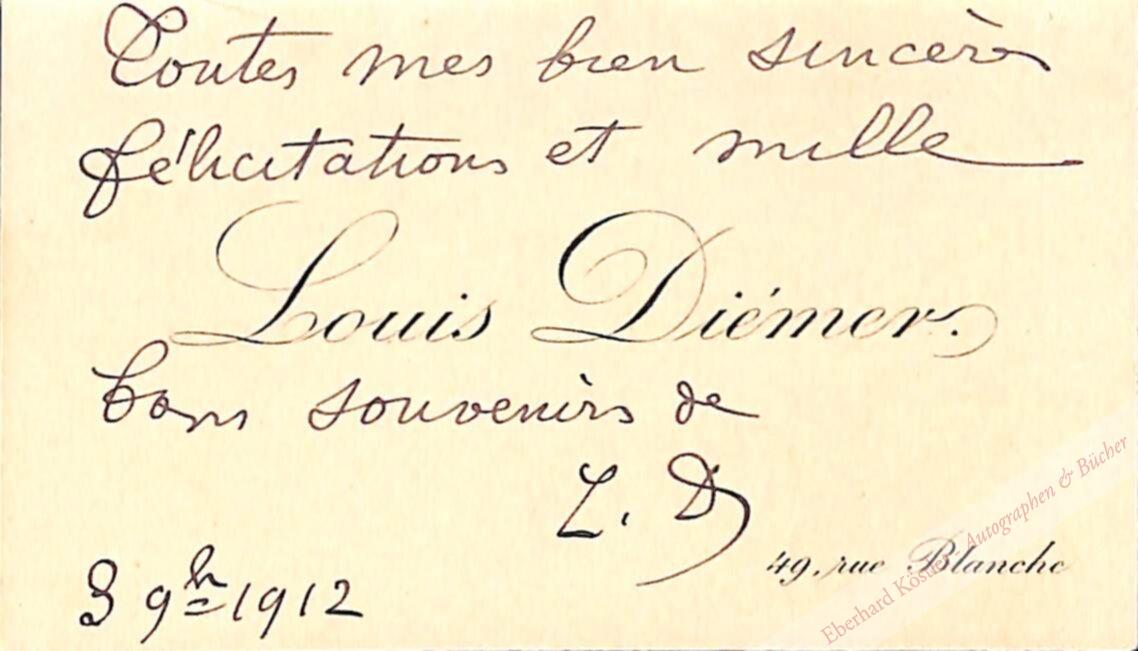 Toutes mes bien sincères
félicitations et mille
Louis Diémer.
bons souvenirs de
L. D
49, rue Blanche
3 9h 1912
Eberhard Köstler Autographen & Bücher